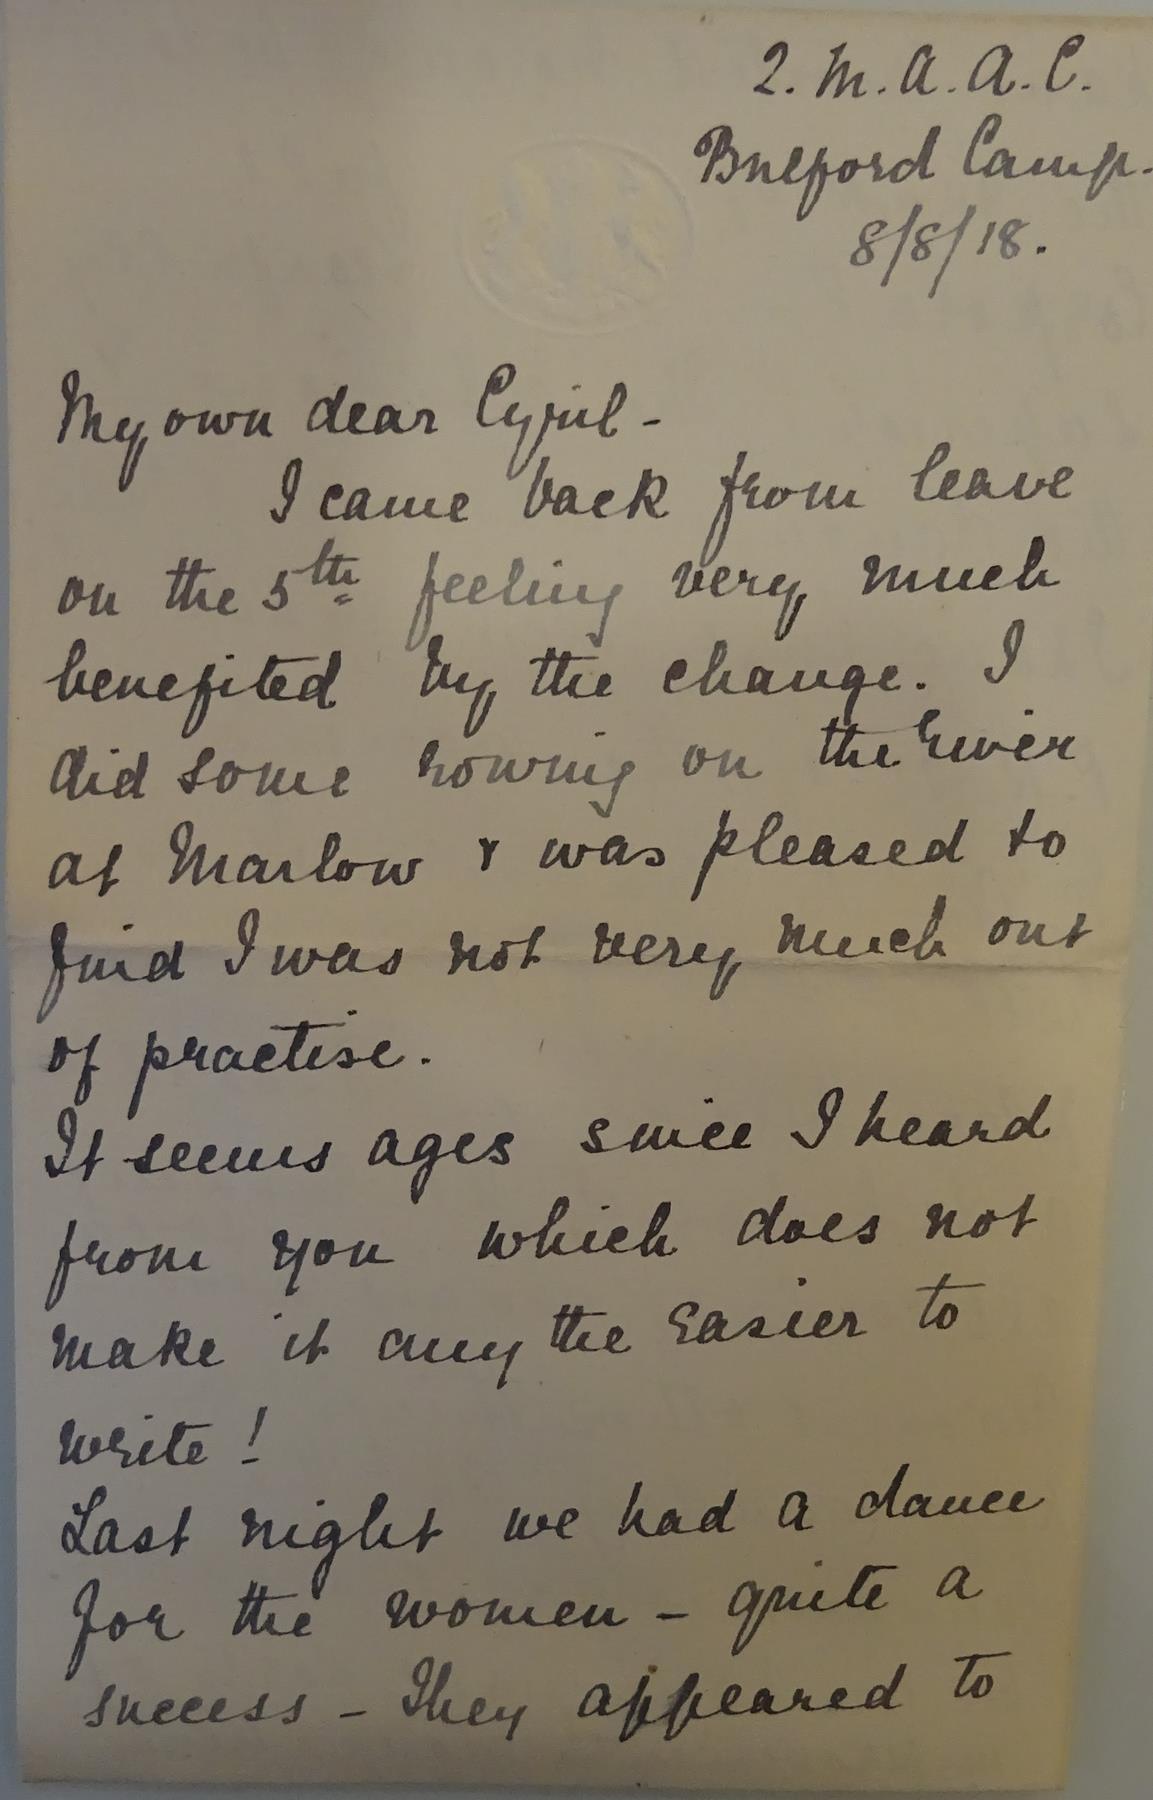 2. M. A. A. C.
Bulford Camp.
8/8/18.
My own dear Cyril -
I came back from leave
on the 5th feeling very much
benefited by the change. I
did some rowing on the river
at Marlow & was pleased to
find I was not very much out
of practise.
It seems ages since I heard
from you which does not
make it any the easier to
write !
Last night we had a dance
for the women - quite a
success - They appeared to